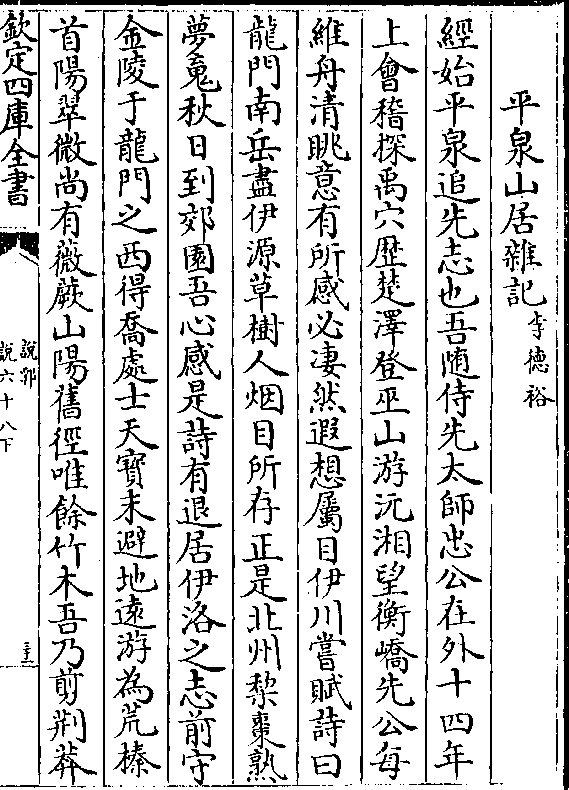 平泉山居雜記李德裕
經始平泉追先志也吾随侍先太師忠公在外十四年
上會稽探禹穴歴楚澤登巫山游沅湘望衡嶠先公每
維舟清眺意有所感必凄然遐想屬目伊川嘗賦詩曰
龍門南岳盡伊源草樹人烟目所存正是北州梨棗熟
夢䰟秋日到郊園吾心感是詩有退居伊洛之志前守
金陵于龍門之西得喬處士天寶末避地逺游為荒榛
首陽翠微尚有薇蕨山陽舊徑唯餘竹木吾乃剪荆莽
欽定四庫全書
說郛
說六十八下